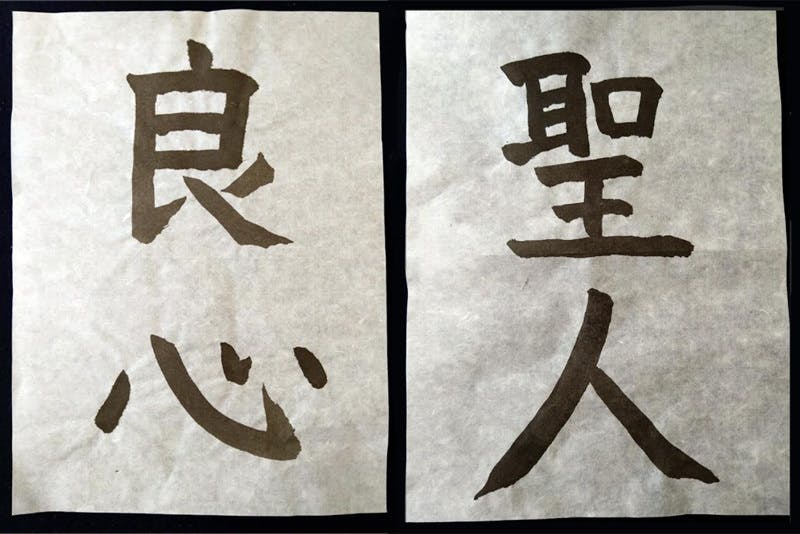 良心
聖人